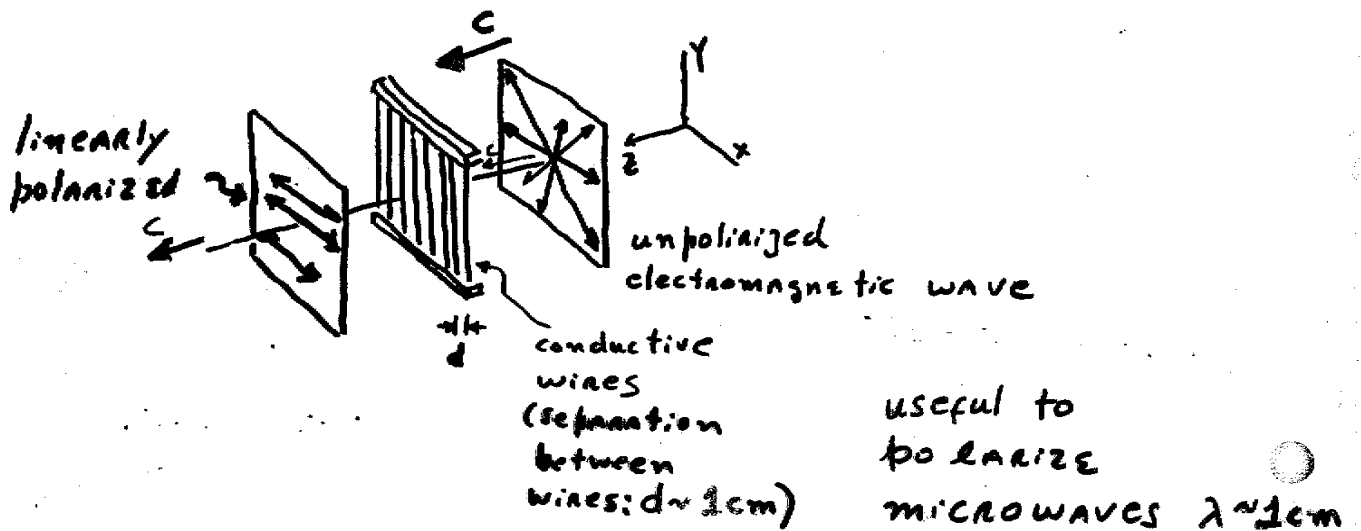 C
Y
x
z
linearly
polarized
c
c
unpolirized
electromagnetic wave
d
conductive
wires
(separation
between
wires: d~1cm)
useful to
polarize
microwaves λ~1cm